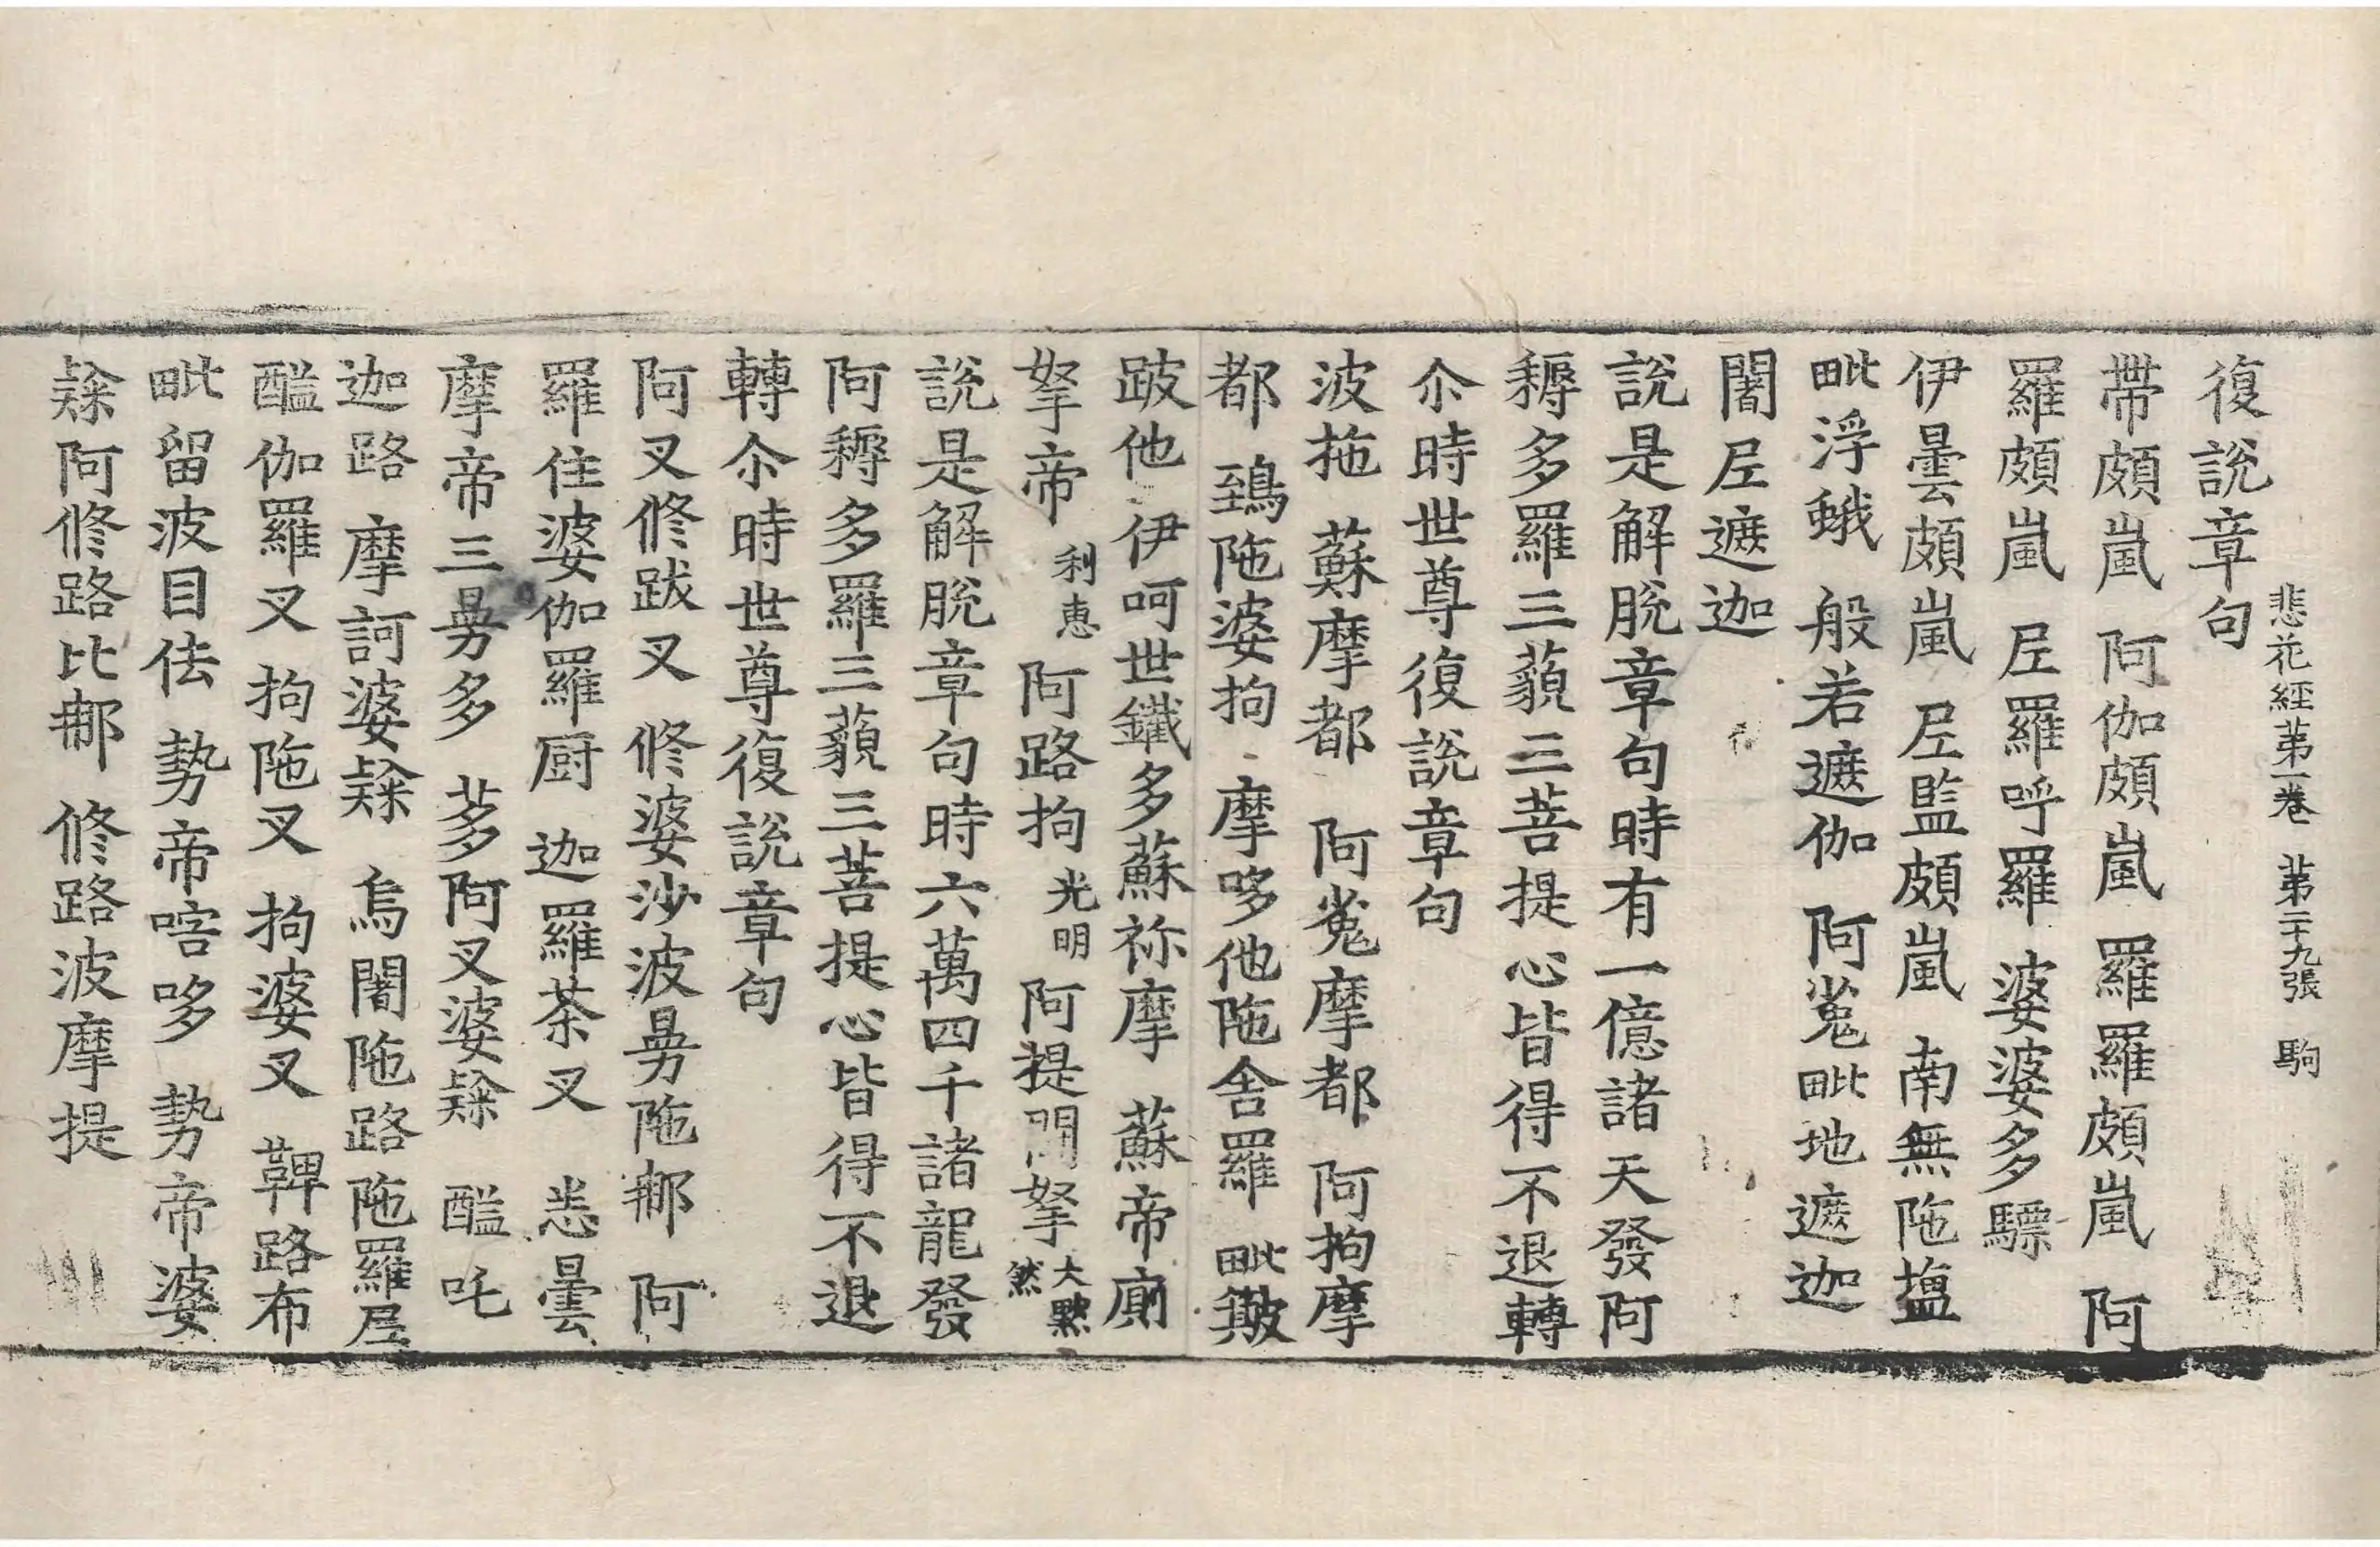 悲花經第一卷 第二十九張 駒
復說章句
帶頗嵐 阿伽頗嵐 羅羅頗嵐 阿
羅頗嵐 𡰱羅呼羅 婆婆多驃
伊曇頗嵐 𡰱監頗嵐 南無陁塩
毗浮蛾 般若遮伽 阿㝹毗地遮迦
闍𡰱遮迦
說是解脫章句時有一億諸天發阿
耨多羅三藐三菩提心皆得不退轉
尒時世尊復說章句
波拖 蘇摩都 阿㝹摩都 阿拘摩
都 鵄陁婆拘 摩哆他陁舍羅 毗
跛他 伊呵世鐵多蘇祢摩 蘇帝廁
拏帝 利惠 阿路拘 光明 阿提鬪拏 大默然
說是解脫章句時六萬四千諸龍發
阿耨多羅三藐三菩提心皆得不退
轉尒時世尊復說章句
阿叉修跋叉 修婆沙波曼陁那 阿
羅住婆伽羅厨 迦羅茶叉 悉曇
摩帝三曼多 茤阿叉婆隸 醯吒
迦路 摩訶婆隸 烏闍陁路 陁羅𡰱
醯伽羅叉 拘陁叉 拘婆叉 鞞路布
毗留波目佉 勢帝㗇哆 勢帝婆
隸阿修路比那 修路波摩提